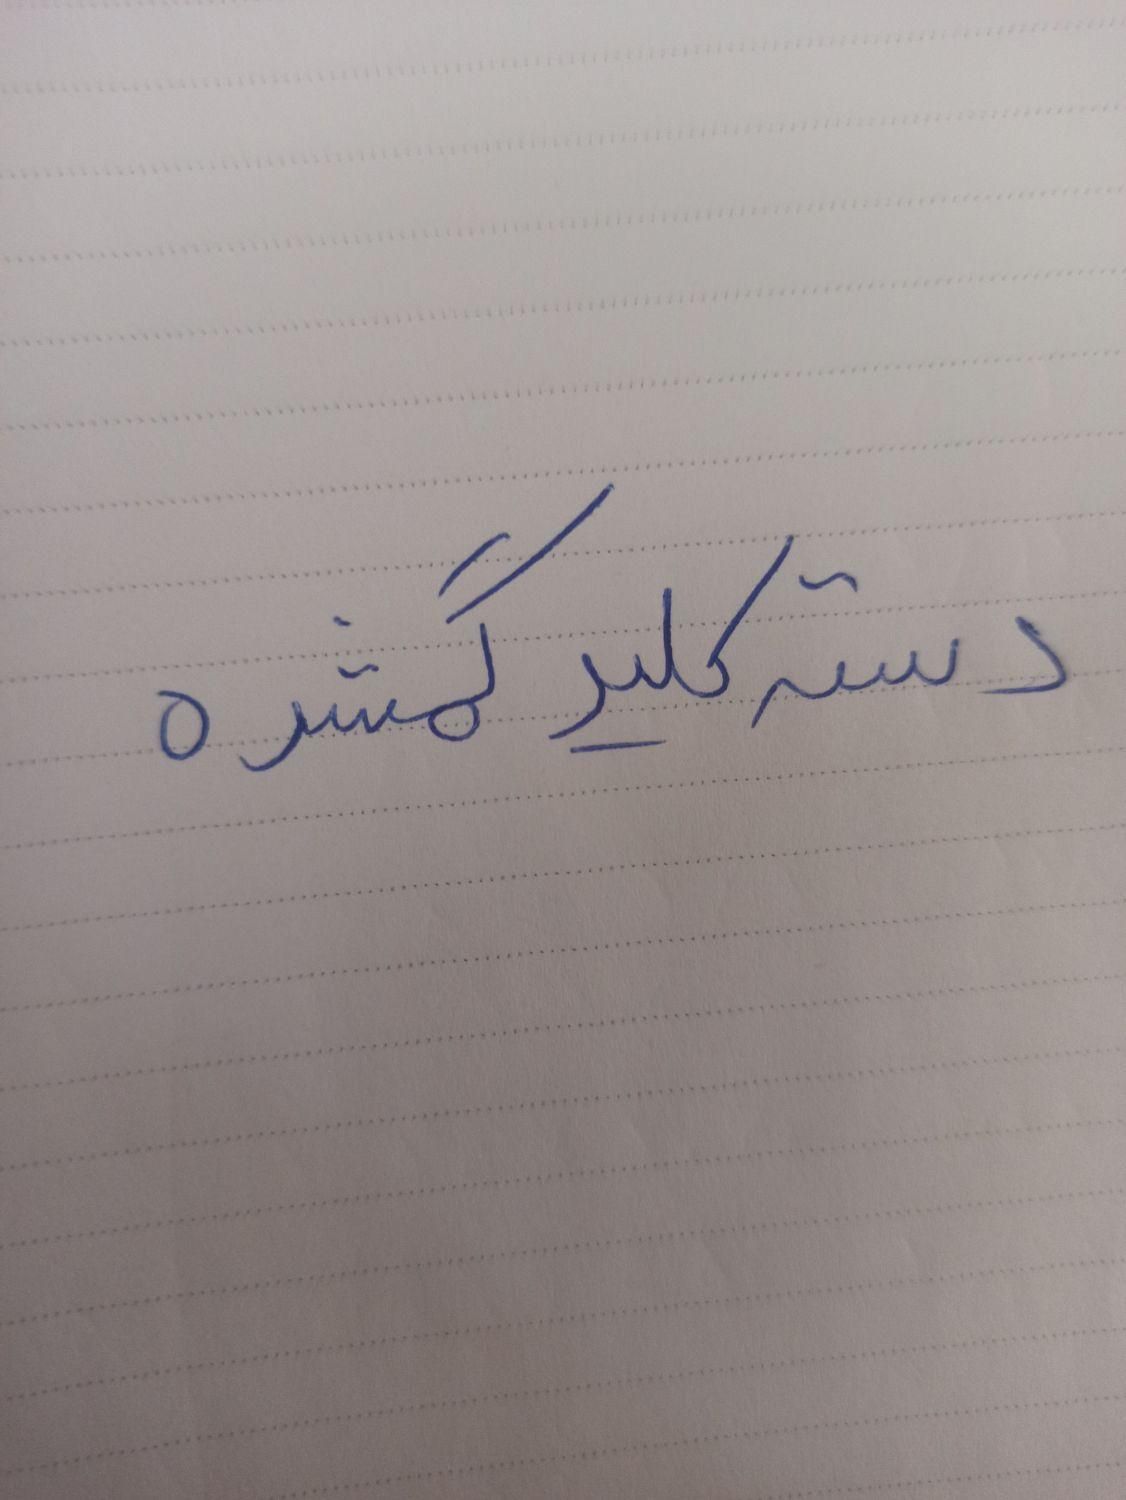 دسته کلید گمشده